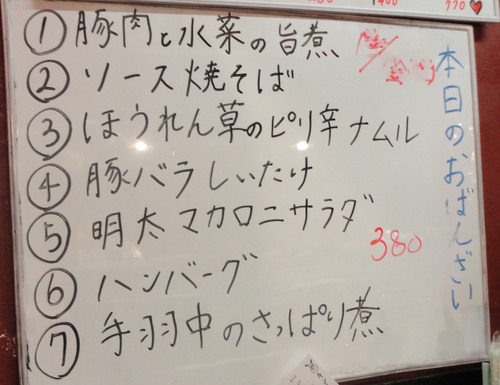 本日のおばんざい
①豚肉と水菜の旨煮
②ソース焼そば
③ほうれん草のピリ辛ナムル
④豚バラしいたけ
⑤明太マカロニサラダ
380
⑥ハンバーグ
⑦手羽中のさっぱり煮